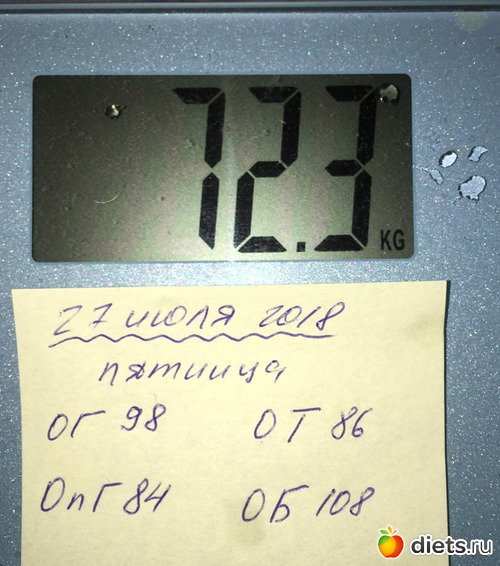 72.3 KG
27 июля 2018
пятница
ОГ 98 ОТ 86
ОпГ 84 ОБ 108
diets.ru